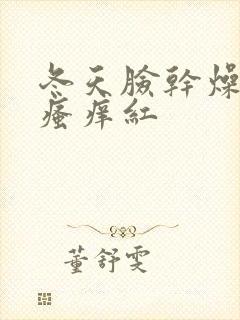 冬天臉幹燥
瘙癢紅
董舒雯